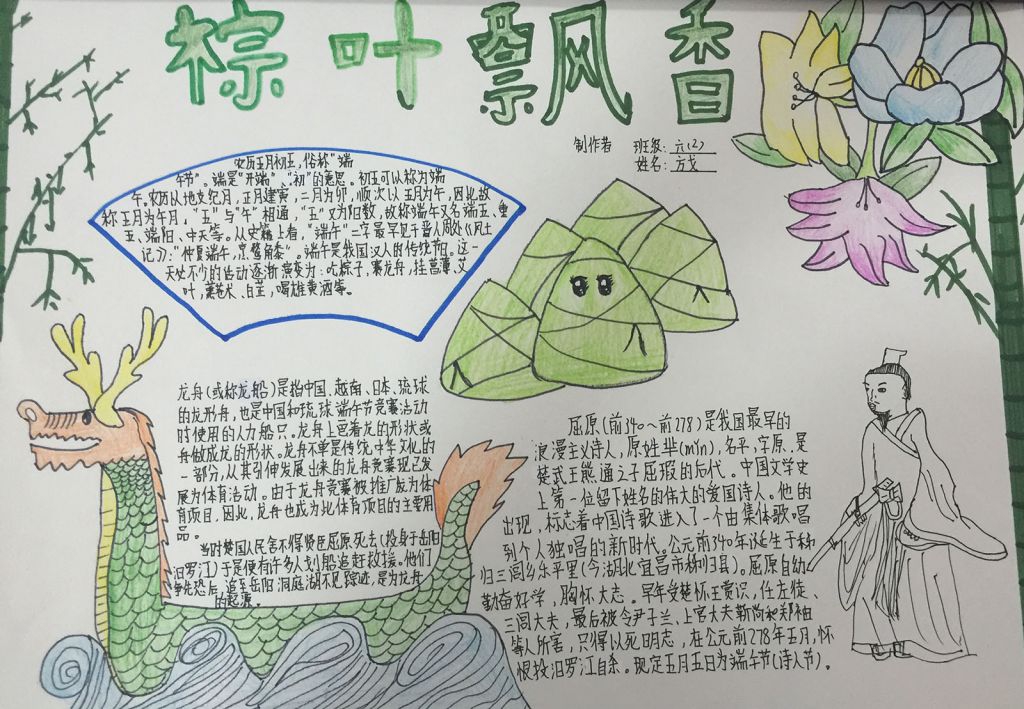 棕叶飘香
制作者 班级：六(2)
姓名：方戈
农历五月初五，俗称"端
午节"。端是"开端"、"初"的意思。初五可以称为端
午。农历以地支纪月，正月建寅，二月为卯，顺次以五月为午，因此故
称五月为午月，"五"与"午"相通，"五"又为阳数，故称端午又名端五、重
五、端阳、中天等。从史籍上看，"端午"一字最早见于晋人周处《风土
记》："仲夏端午，烹鹜角黍"。端午是我国汉人的传统节日。这一
天必不少的活动逐渐演变为：吃粽子，赛龙舟，挂菖蒲、艾
叶，薰苍术、白芷，喝雄黄酒等。
龙舟(或称龙船)是指中国、越南、日本、琉球
的龙形舟，也是中国和琉球端午节竞赛活动
时使用的人力船只。龙舟上画着龙的形状或
舟做成龙的形状。龙舟不单是传统中华文化的
一部分，从其引伸发展出来的龙舟竞赛现已发
展为体育活动。由于龙舟竞赛被推广成为体
育项目，因此，龙舟也成为此体育项目的主要用
品。
当时楚国人民舍不得贤臣屈原死去(投身于岳阳
汨罗江)于是便有许多人划船追赶救援。他们
争先恐后，追至岳阳洞庭湖不见踪迹，是为龙舟
的起源。
屈原(前340～前278)是我国最早的
浪漫主义诗人，原姓芈(mǐn)，名平，字原，是
楚武王熊通之子屈瑕的后代。中国文学史
上第一位留下姓名的伟大的爱国诗人。他的
出现，标志着中国诗歌进入了一个由集体歌唱
到个人独唱的新时代。公元前340年诞生于秭
归三闾乡乐平里(今湖北宜昌市秭归县)。屈原自幼
勤奋好学，胸怀大志。早年受楚怀王赏识，任左徒、
三闾大夫，最后被令尹子兰、上官大夫靳尚和郑袖
等人所害，只得以死明志，在公元前278年五月，怀
恨投汨罗江自杀。现定五月五日为端午节(诗人节)。